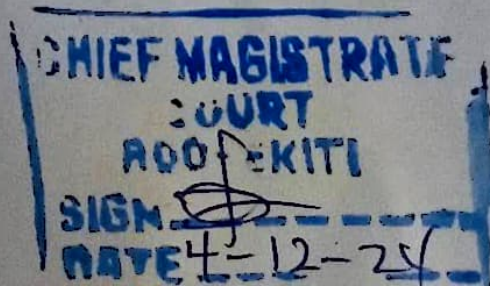 CHIEF MAGISTRATE
COURT
ADO-EKITI
SIGN
DATE 4-12-24